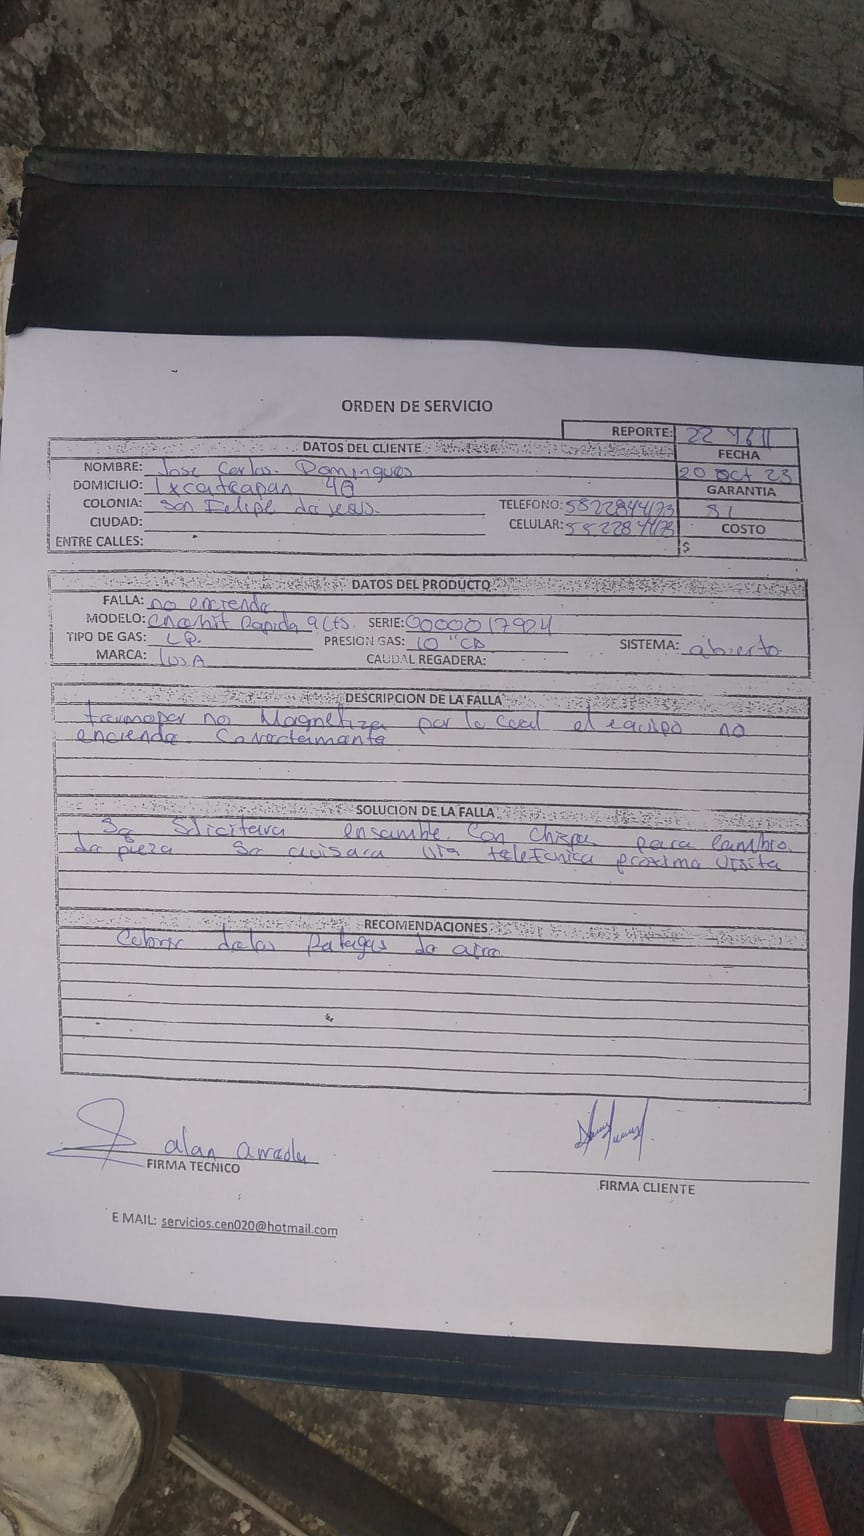 ORDEN DE SERVICIO
REPORTE:
DATOS DEL CLIENTE
FECHA
NOMBRE: Jose Carlos. Domingues
20 oct 23
DOMICILIO: Ixcateapan 40
GARANTIA
COLONIA: San Felipe de Jesus.
TELEFONO: 5822844173
SI
CIUDAD:
CELULAR: 5522784473
COSTO
ENTRE CALLES:
$
DATOS DEL PRODUCTO
FALLA: no enciende
MODELO: Rapida 9 Lts. SERIE: 0000017924
TIPO DE GAS: L.P. PRESION GAS: 10 "CA SISTEMA: abierto
MARCA: IUSA CAUDAL REGADERA:
DESCRIPCION DE LA FALLA
termoper no Magnetiza por lo cual el equipo no
enciende Correctamente
SOLUCION DE LA FALLA
Se Solicitara ensamble. Con chispa para cambio.
de pieza Se avisara via telefonica proxima visita
RECOMENDACIONES
Cubrir delas Rafagas de aire
alan
FIRMA TECNICO
FIRMA CLIENTE
E MAIL: servicios.cen020@hotmail.com